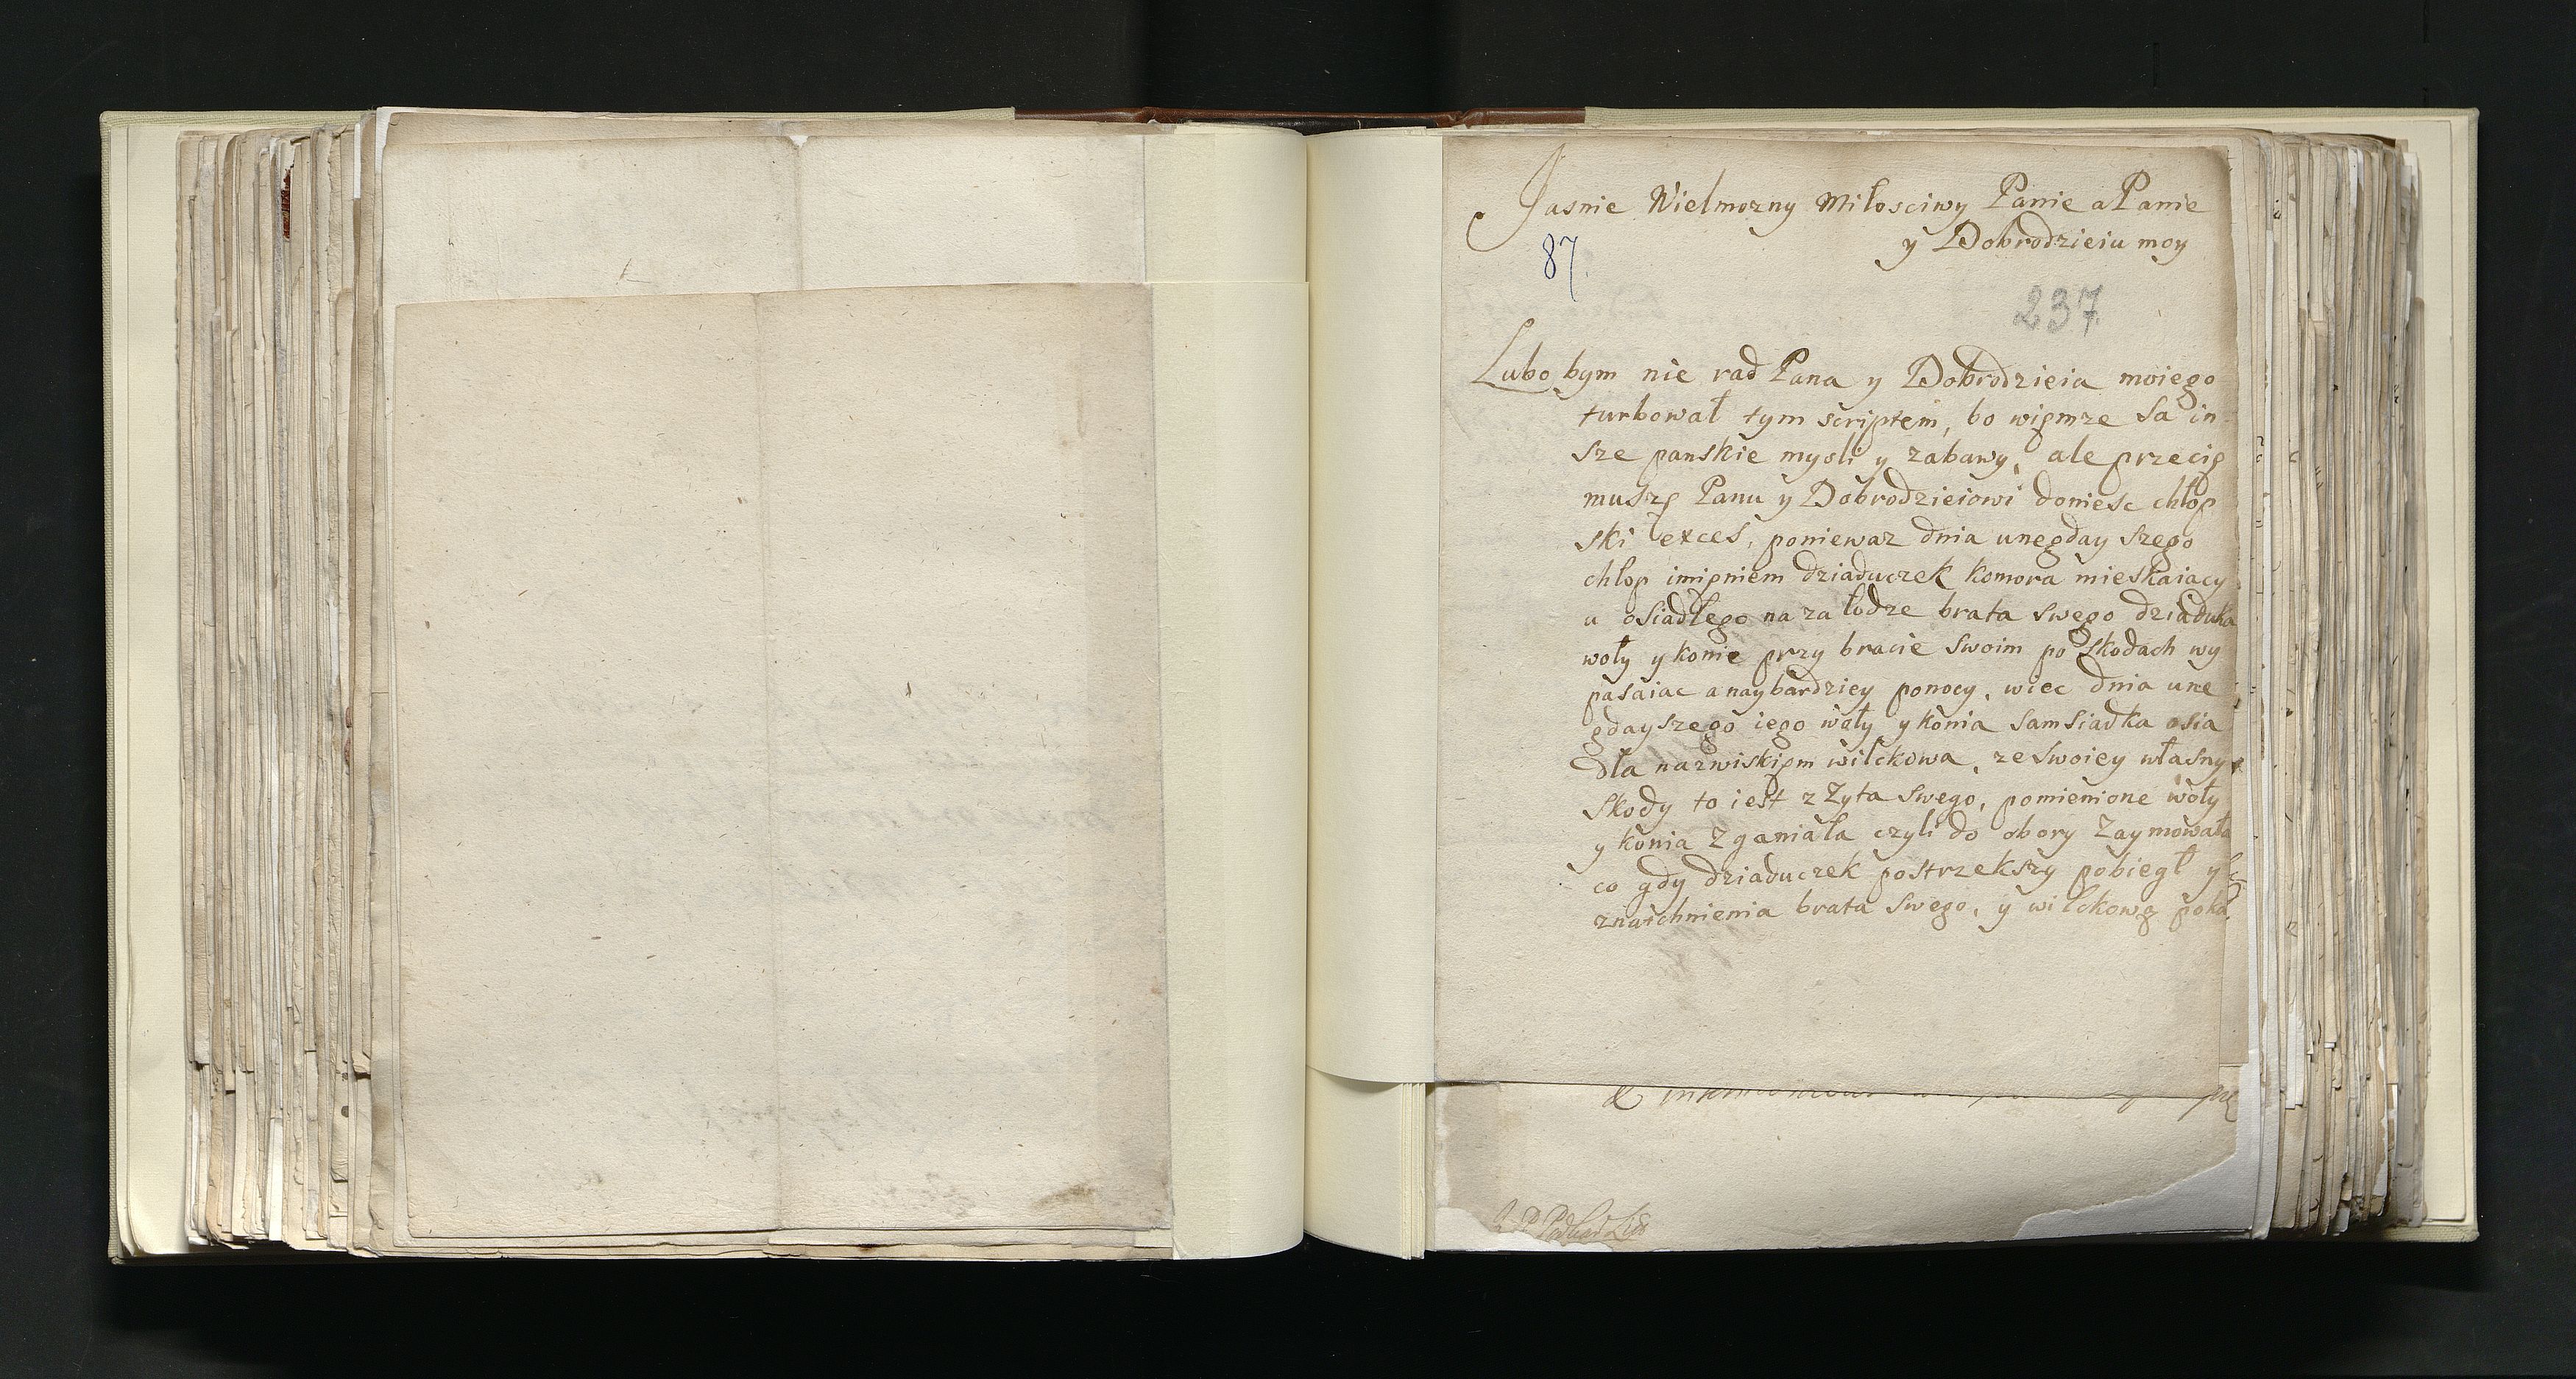 Jasnie Wielmozny Miłosciwy Panie a Panie
y Dobrodzieiu moy
87.
237
Lubo bym nie rad Pana y Dobrodzieia moiego
turbował tym scriptem, bo więmze Sa in
sze panskie mysli y zabawy, ale przecię
muszę Panu y Dobrodzieiowi doniesc chłop
ski exces, poniewaz dnia unegday szego
chłop imięniem dziaduczek komora mieskaiacy
u osiadłego na załodze brata swego dziaduka
woły y konie przy bracie swoim po skodach wy
pasaiac a naybardziey ponocy, wiec dnia une
gdayszego iego woły y konia samsiadka osia
dła nazwiskięm wilckowa, ze swoiey własny
skody to iest z Zyta swego, pomienione woły
y konia Zganiała czyli do obory Zaymowała
co gdy dziaduczek postrzekszy pobiegł y
znatchnienia brata swego, y wilckowę poka
&